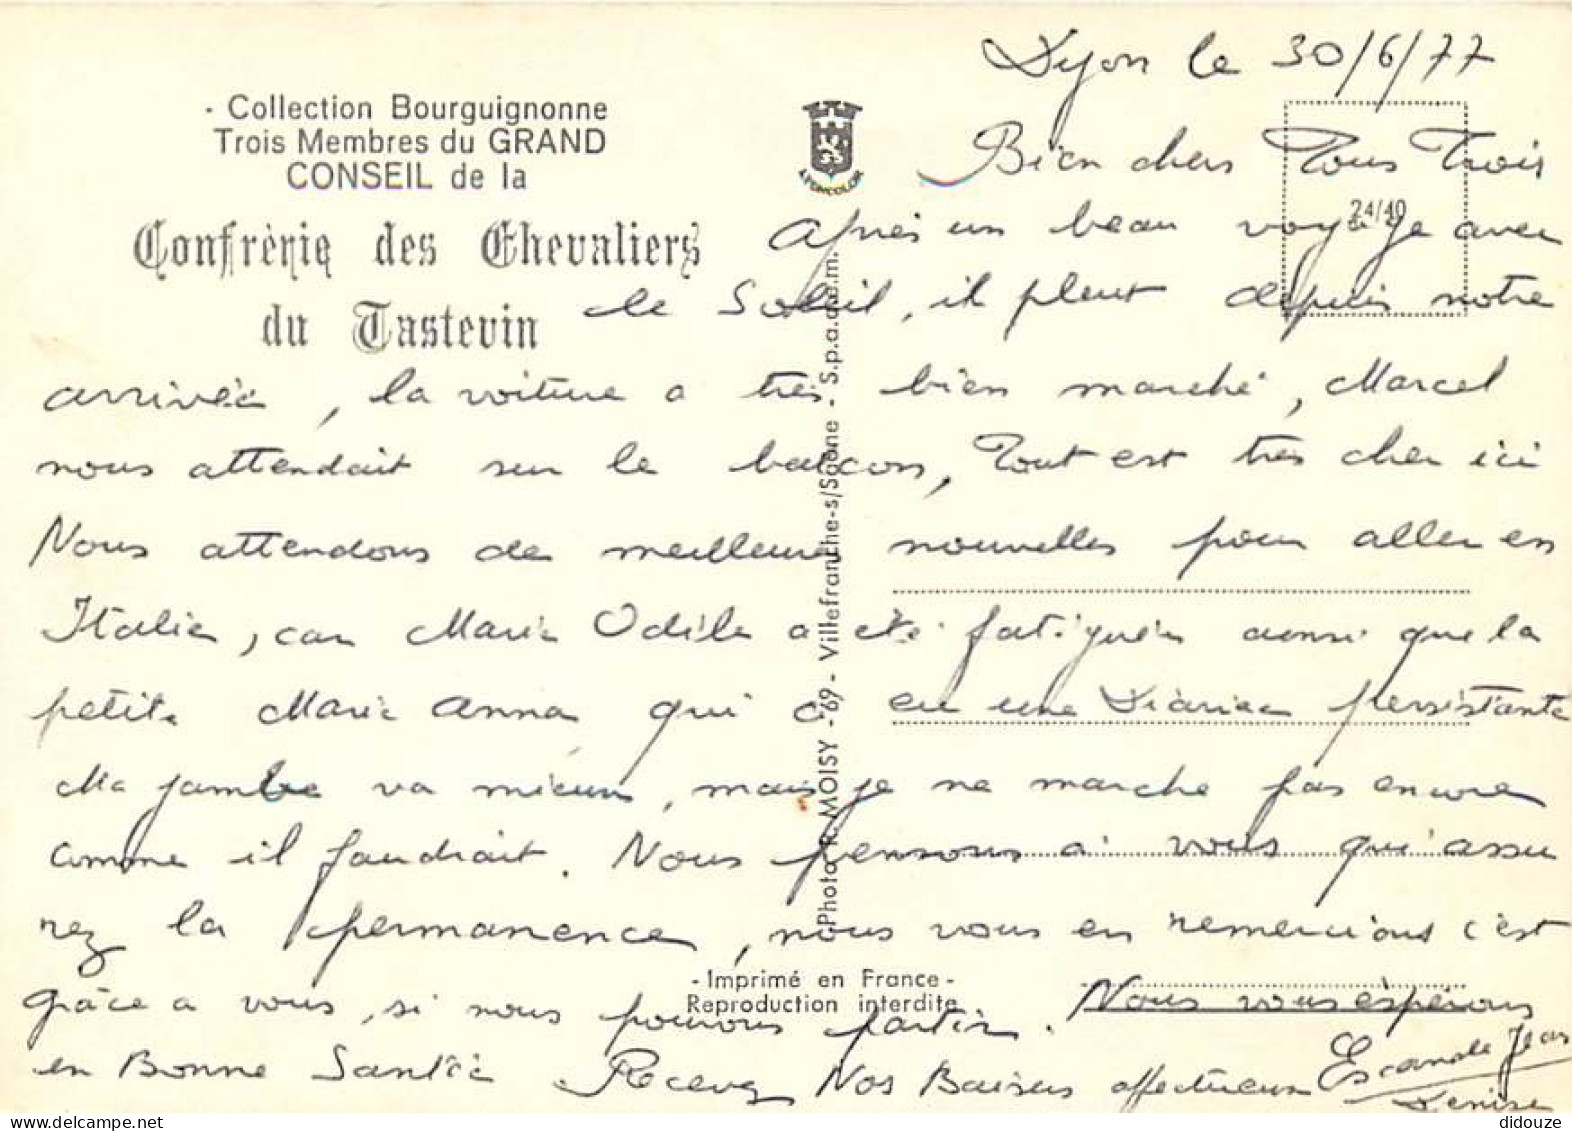 Lyon le 30/6/77
- Collection Bourguignonne
Trois Membres du GRAND
CONSEIL de la
Confrérie des Chevaliers
du Tastevin
APHOCOLOR
24/40
Bien chers Tous Trois
Après un beau voyage avec
le Soleil, il pleut depuis notre
arrivée, la voiture a très bien marché, Marcel
nous attendait sur le balcon, Tout est très cher ici
Nous attendons de meilleures nouvelles pour aller en
Italie, car Marie Odile a été fatiguée ainsi que la
petite Marie Anna qui a eu une Diariée persistante
Ma jambe va mieux, mais je ne marche pas encore
comme il faudrait. Nous pensons à vous qui assu
rez la permanence, nous vous en remercions c'est
grâce a vous, si nous pouvons partir. Nous vous espérons
en Bonne Santée Recevez Nos Baisers affectueux
Escande Jean
Denise
Photo R. MOISY - 69 - Villefranche-s/Saône - S.p.a.d.e.m.
- Imprimé en France -
Reproduction interdite
delcampe.net
didouze